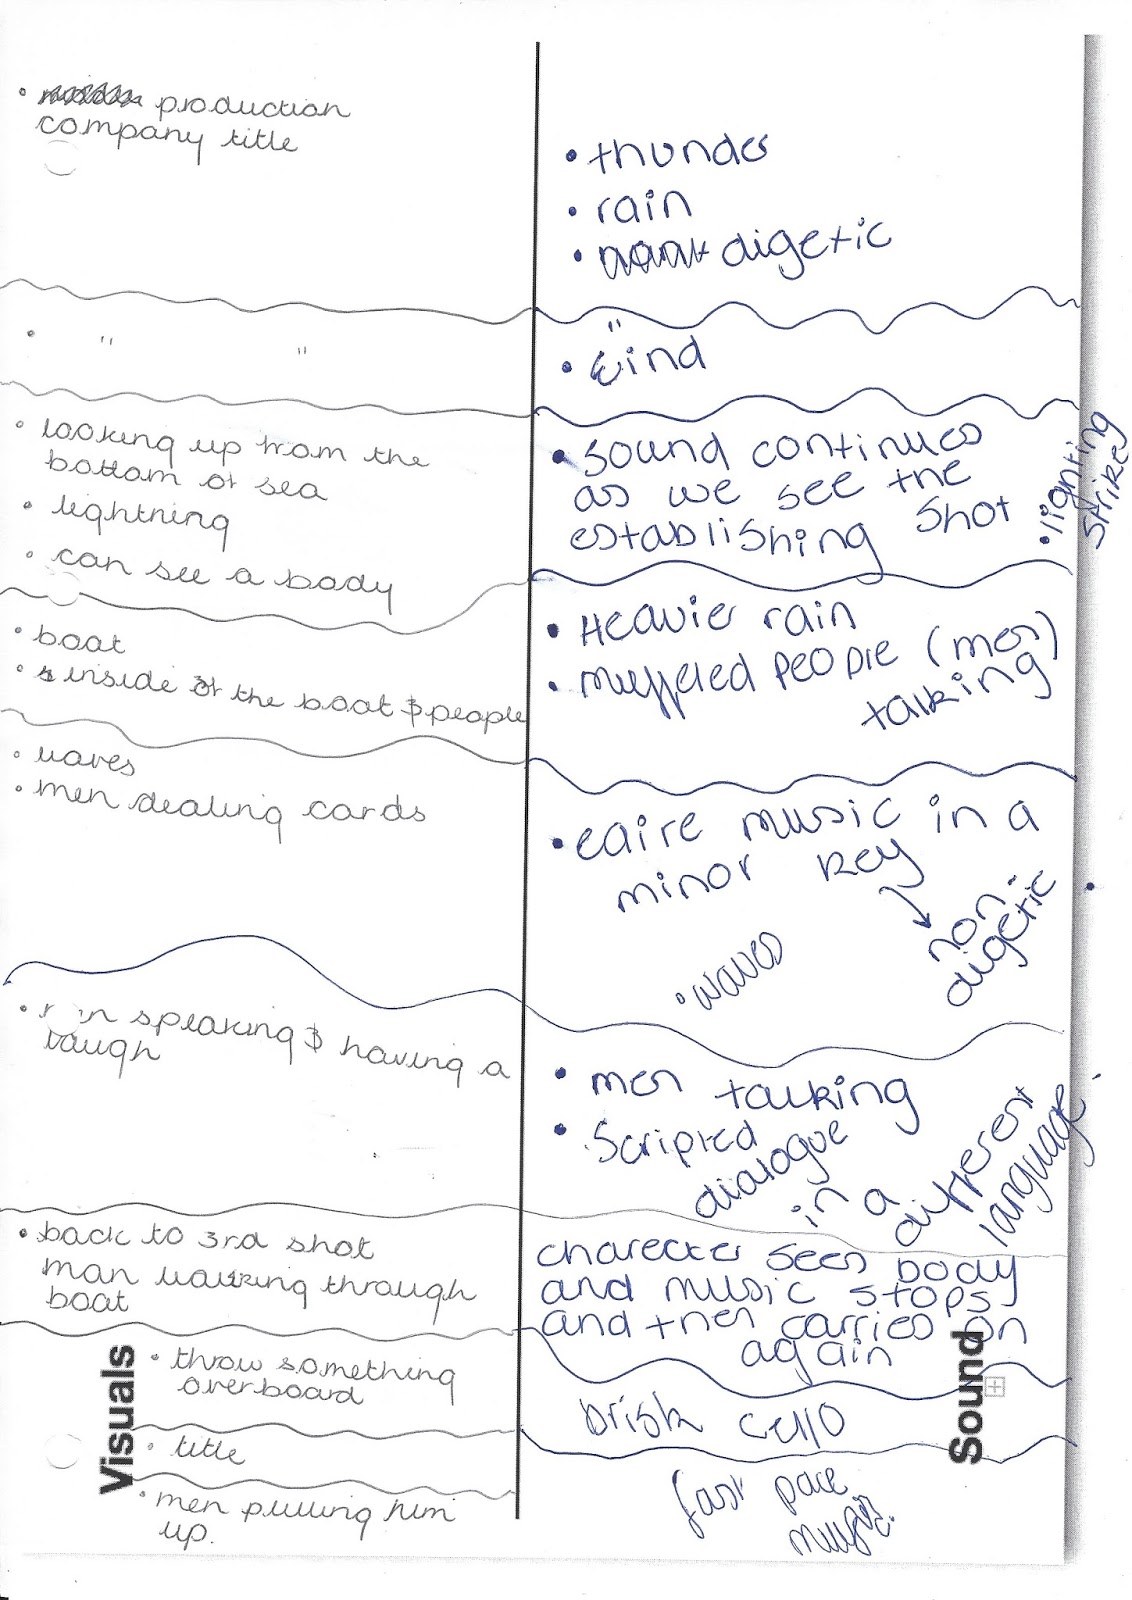 • production
company title
• thunder
• rain
• digetic
• " "
"
• wind
• looking up from the
bottom of sea
• lightning
• can see a body
• sound continues
as we see the
establishing shot
• lighting
strike
• boat
• inside of the boat & people
• Heavier rain
• muffeled people (men)
talking
• waves
• men dealing cards
• eaire music in a
minor key
non-
digetic
• waves
• speaking & having a
laugh
• men talking
• Scripted
dialogue
in a
different
language.
• back to 3rd shot
man walking through
boat
charecter sees body
and music stops
and then carries on
again
Visuals
• throw something
overboard
Sound
brisk cello
• title
• men pulling him
up.
fast pace
music.